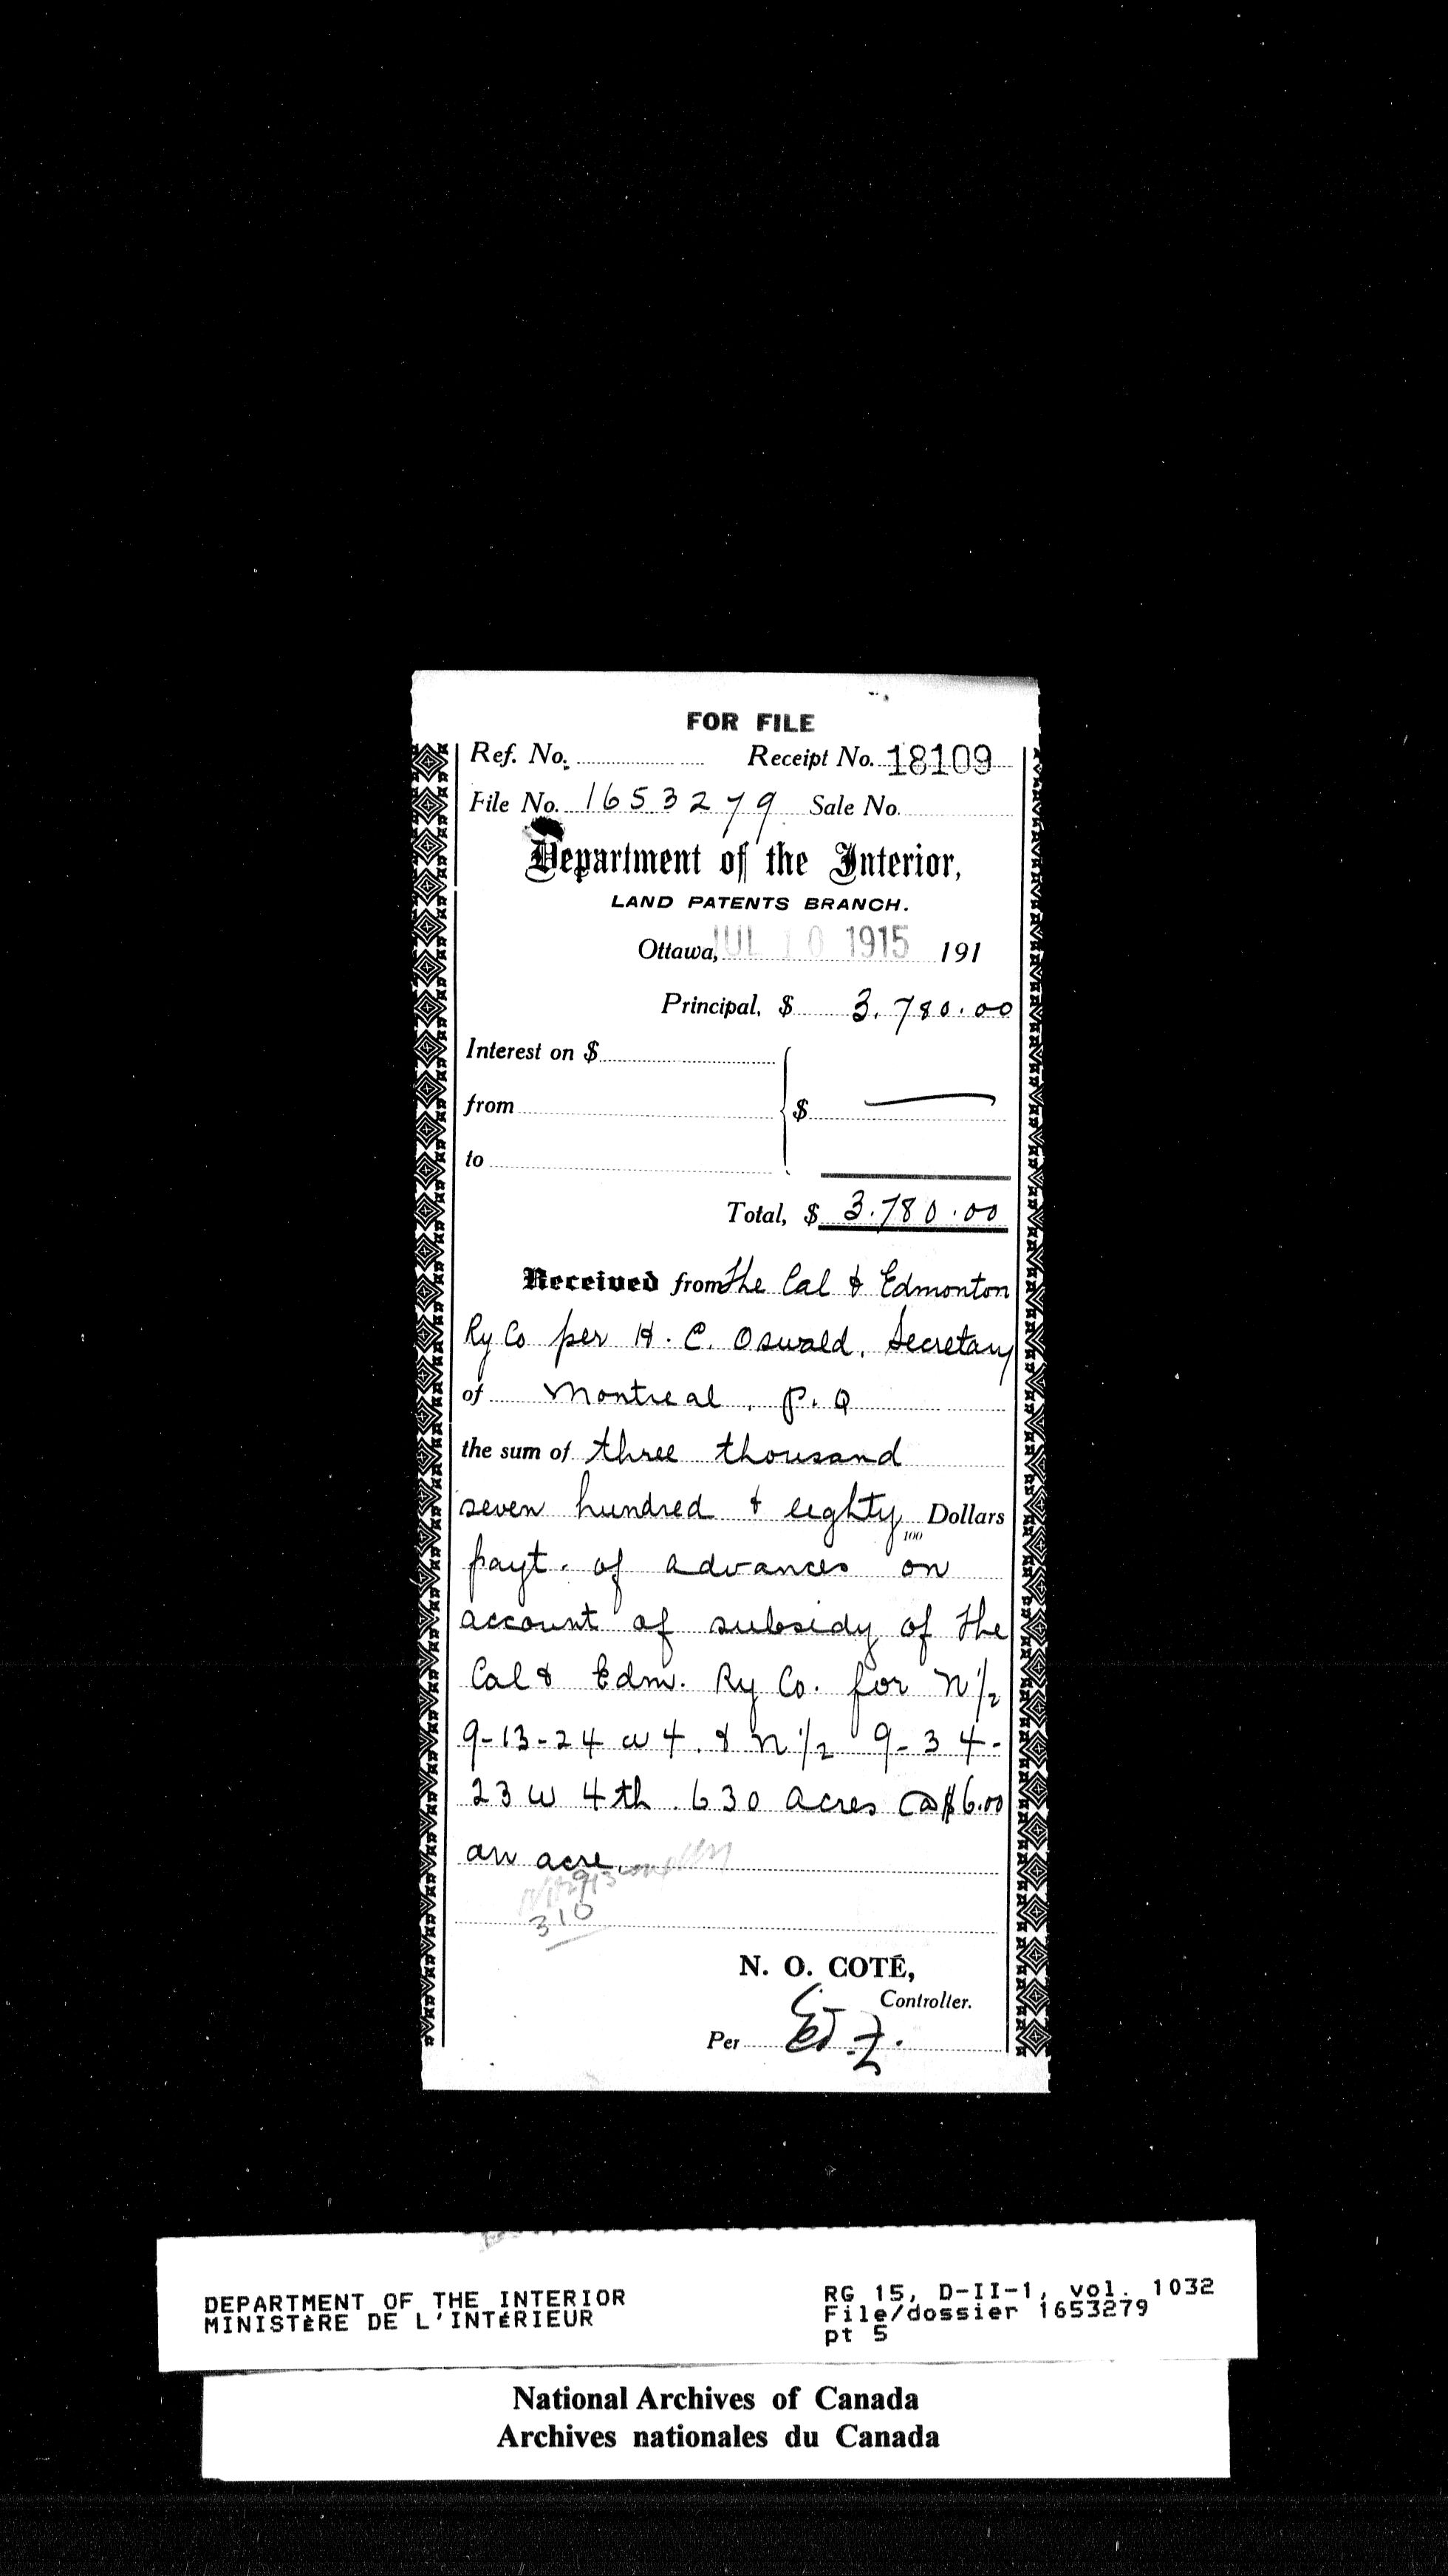 FOR FILE
Ref. No. Receipt No. 18109
File No. 1653279 Sale No.
Department of the Interior,
LAND PATENTS BRANCH.
Ottawa, JUL 10 1915 191
Principal, $ 3,780.00
Interest on $
from $ —
to
Total, $ 3.780.00
Received from The Cal & Edmonton
Ry Co per H. C. Oswald, Secretary
of Montreal, P.Q
the sum of three thousand
seven hundred & eighty 100 Dollars
payt. of advances on
account of subsidy of the
Cal & Edm. Ry Co. for N 1/2
9-13-24 w 4. & N 1/2 9-34-
23 w 4th. 630 acres @ $6.00
an acre.
310
N. O. COTÉ,
Controller.
Per
DEPARTMENT OF THE INTERIOR
MINISTÈRE DE L'INTÉRIEUR
RG 15, D-II-1, vol. 1032
File/dossier 1653279
pt 5
National Archives of Canada
Archives nationales du Canada